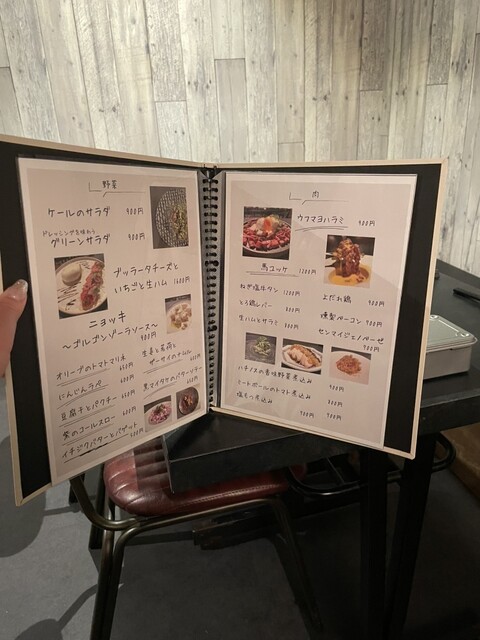 野菜
ケールのサラダ 900円
ドレッシングを味わう
グリーンサラダ 900円
ブッラータチーズと
いちごと生ハム 1600円
ニョッキ
～ゴルゴンゾーラソース～
900円
オリーブのトマトマリネ
にんじんラペ
豆腐干とパクチー 600円
紫のコールスロー
イチジクバターとバゲット
生姜と茗荷と
ザーサイのナムル
黒マイタケのバターソテー
肉
ウワマヨハラミ 900円
馬ユッケ 1200円
ねぎ塩牛タン 1200円
とろ鶏レバー 900円
生ハムとサラミ 800円
よだれ鶏 900円
燻製ベーコン 900円
センマイジェノベーゼ
900円
ハチノスの香味野菜煮込み
ミートボールのトマト煮込み
塩もつ煮込み
900円
900円